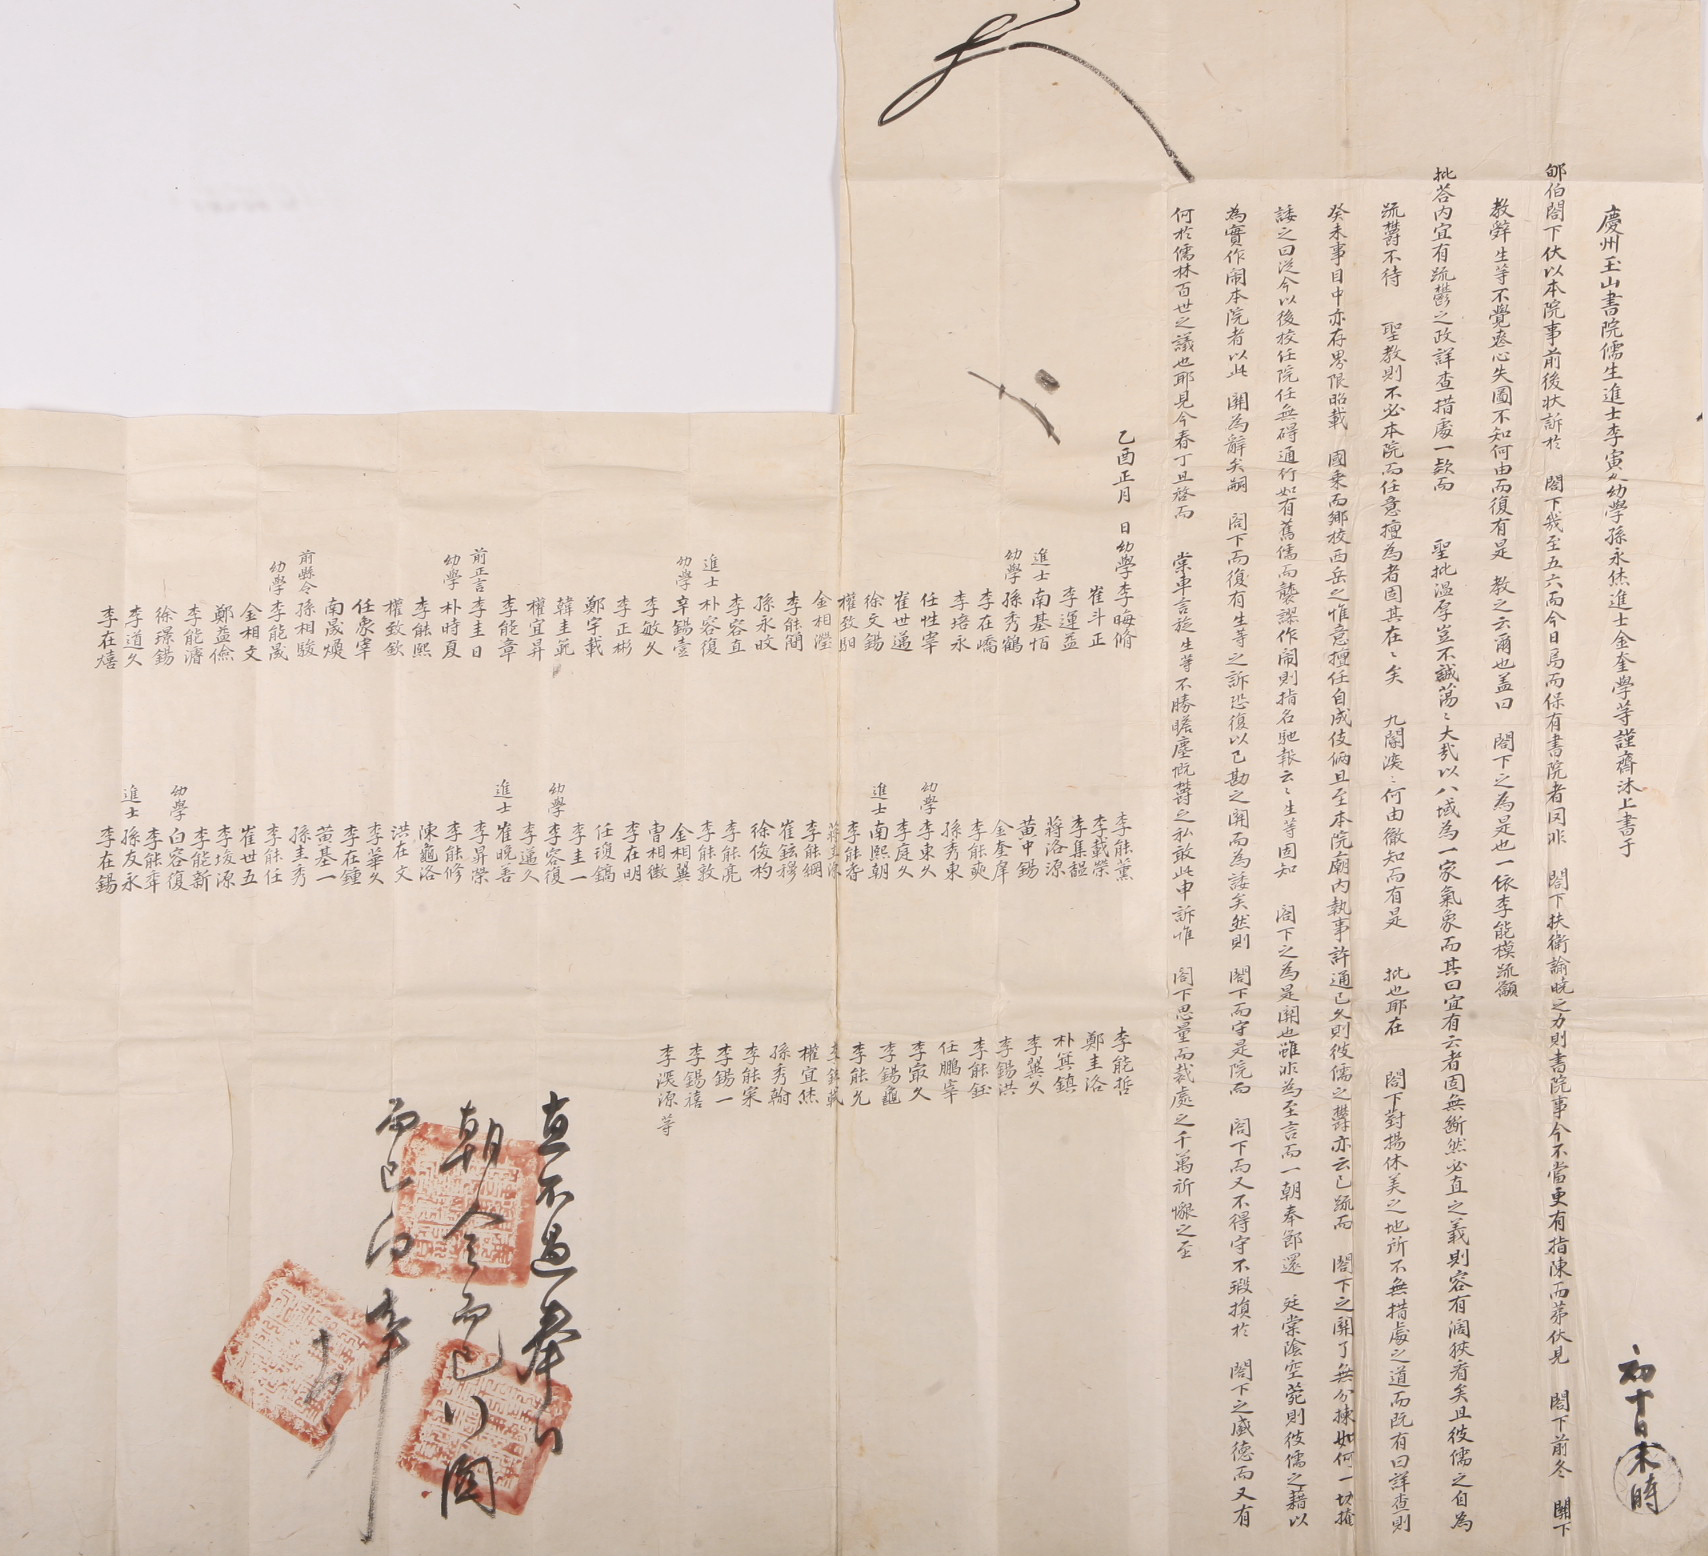 慶州玉山書院儒生進士李寅久幼學孫永烋進士金奎學等謹齋沐上書于
郇伯閤下伏以本院事前後狀訴於 閤下幾至五六而今日爲而保有書院者因非 閤下扶衛諭曉之力則書院事今不當更有指陳而第伏見 閤下前冬 關下
教辭生等不覺蹙心失圖不知何由而復有是 教之云爾也盖曰 閤下之爲是也一依李能模疏籲
批答內宜有疏鬱之政詳查措處一款而 聖批溫厚豈不誠蕩〻大哉以八域為一家氣象而其曰宜有云者固無斷然必直之義則容有濶狹看矣且彼儒之自為
疏鬱不待 聖教則不必本院而任意擅為者固其在〻矣 九閽漠〻何由徹知而有是 批也耶在 閤下對揚休美之地所不無措處之道而旣有曰詳查則
癸未事目中亦存界限昭載 國乘而鄉校西岳之惟意擅任自成伎倆且至本院廟內執事許通已久則彼儒之鬱亦云已疏而 閤下之關了無分揀如何一切掩
諉之曰從今以後校任院任無碍通行如有舊儒而襲謬作鬧則指名馳報云〻生等固知 閤下之為是關也雖非為至言而一朝奉節還 廷棠陰空菀則彼儒之藉以
為實作鬧本院者以此 關為辭矣嗣 閤下而復有生等之訴恐復以已勘之關而為諉矣然則 閤下而守是院而 閤下而又不得守不瑕損於 閤下之盛德而又有
何於儒林百世之議也耶見今春丁且啓而 棠車言旋生等不勝瞻塵慨鬱之私敢此申訴惟 閤下思量而裁處之千萬祈懇之至
乙酉正月 日幼學李晦脩
崔斗正
李運益
進士南基恒
幼學孫秀鶴
李在嶠
李培永
任性宰
崔世邁
徐文錫
權致明
金相瀅
李能簡
孫永旼
李容直
進士朴容復
幼學辛錫壹
李敏久
李正彬
鄭宇載
韓圭範
權宜昇
李能章
前正言李圭日
幼學朴時夏
李能熙
權致欽
任象宰
南晟煥
前縣令孫相駿
幼學李能晟
金相文
鄭益儉
李能濤
徐璟錫
李道久
李在熺
李能薰
李載榮
李集韞
蔣洛源
黄中錫
金奎岸
李能奭
孫秀東
幼學李東久
李庭久
進士南熙朝
李能香
李能綱
崔鉉穆
徐俊杓
李能亮
李能敦
金相翼
曺相徽
李在明
任瓊鎬
李圭一
幼學李容復
李邁久
進士崔晩善
李昇榮
李能修
陳龜洛
洪在文
李華久
李在鍾
黄基一
孫圭秀
李能任
崔世五
李垓源
李能新
幼學白容復
李能牽
進士孫友永
李在錫
李能哲
鄭圭洛
朴箕鎮
李巽久
李錫洪
李能鈺
任鵬宰
李宬久
李錫龜
李能允
權宜烋
孫秀翰
李能宋
李錫一
李錫禧
李漢源等
直不過奉行
朝令而已
而已向事
十四
初十日未時